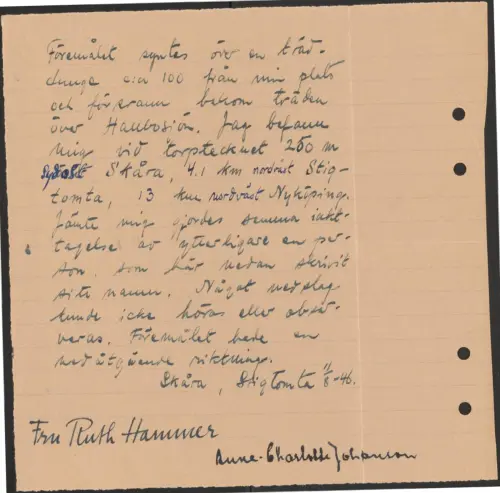 Föremålet syntes över en träd-
dunge c:a 100 från min plats
och försvann bakom träden
över Hallbosjön. Jag befann
mig vid torptecknet 250 m
sydost Skåra, 4.1 km nordväst Stig-
tomta, 13 km nordväst Nyköping.
Jämte mig gjordes samma iakt-
tagelse av ytterligare en per-
son, som här nedan skrivit
sitt namn. Något nedslag
kunde icke höras eller obser-
veras. Föremålet hade en
nedåtgående riktning.
Skåra, Stigtomta 11/8-46.
Fru Ruth Hammer
Anne-Charlotte Johanson